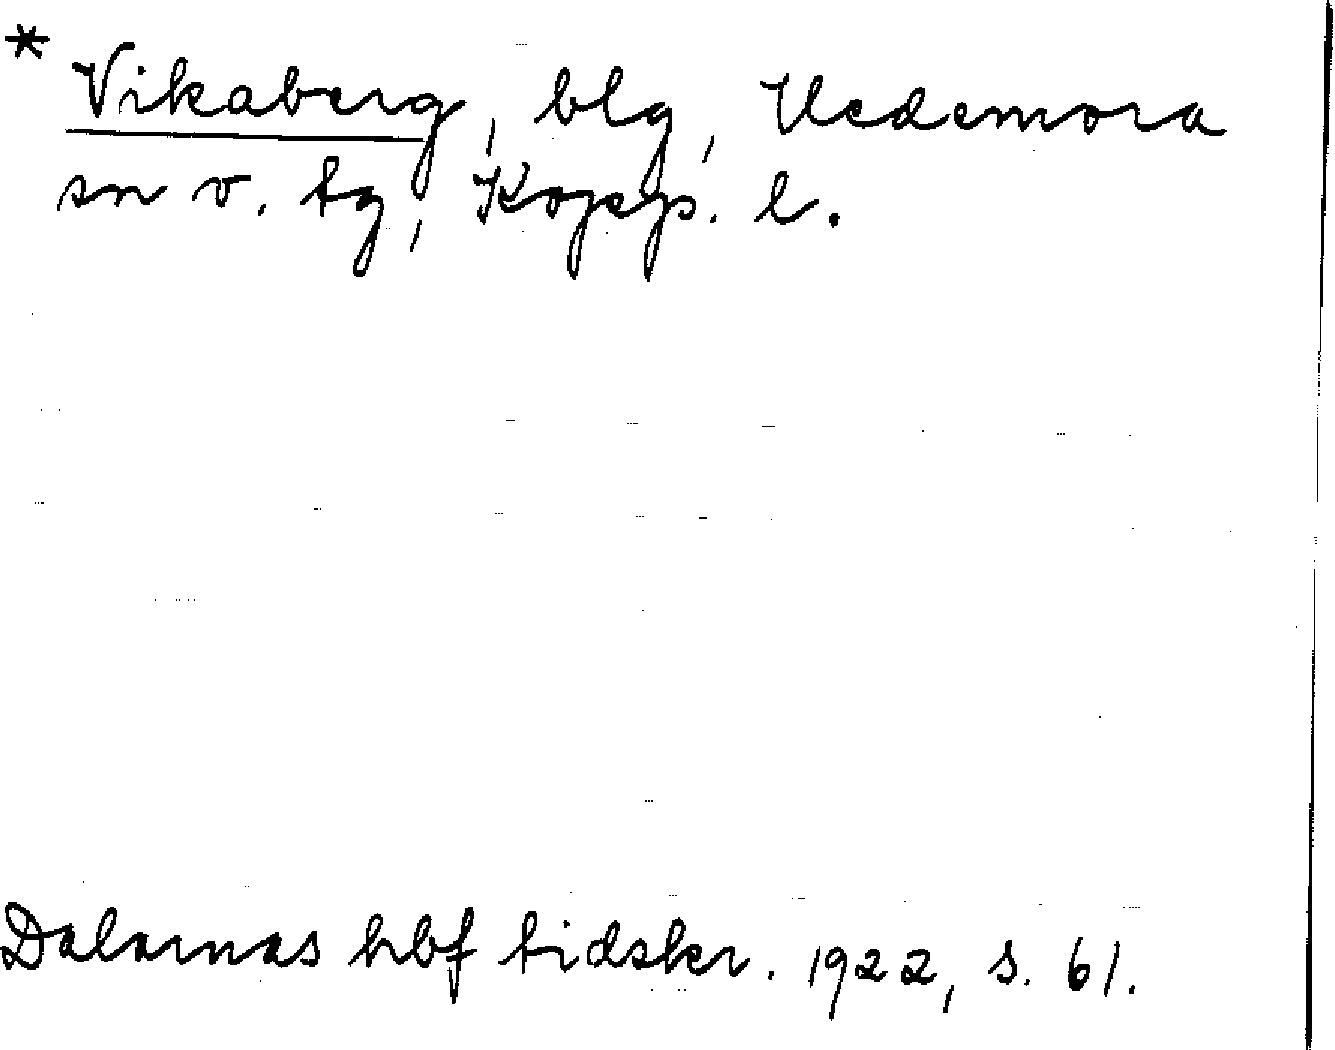 * Vikaberg, blg, Hedemora
sn o. tg, Kopp. l.
Dalarnas hbf tidskr. 1922, s. 61.